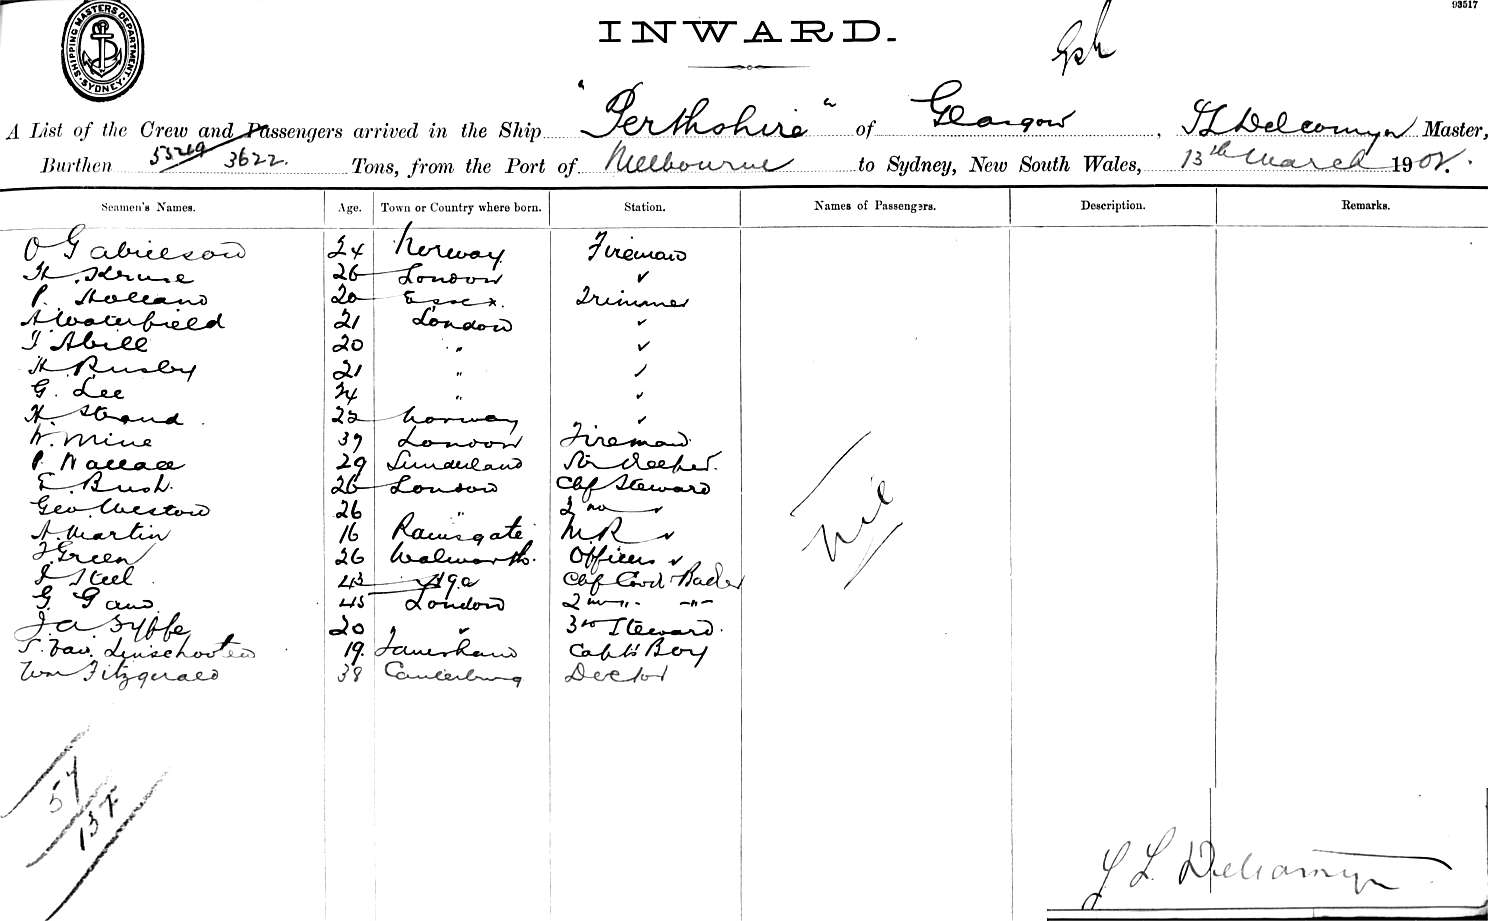 93517
SHIPPING MASTERS DEPARTMENT SYDNEY
INWARD.
A List of the Crew and Passengers arrived in the Ship "Perthshire" of Glasgow, Master,
Burthen 3622. Tons, from the Port of Melbourne to Sydney, New South Wales, 13th March 1902.
Seamen's Names. Age. Town or Country where born. Station. Names of Passengers. Description. Remarks.
O Gabrielson 24 Norway Fireman
H. Kruse 26 London ✓
P. Holland 20 Essex. Trimmer
A Waterfield 21 London ✓
T Abill 20 " ✓
H Rusby 21 " ✓
G. Lee 24 " ✓
H. Strand 22 Norway ✓
W. Mine 39 London Fireman
P. Wallace 29 Sunderland
E. Bush. 26 London Chf Steward
Geo. Weston 26 " 2nd ✓
A. Martin 16 Ramsgate M.R ✓
F. Green 26 Walworth. Officers ✓
J Steel 43 Chf Cook Baker
G. Gaw 45 London 2nd " "
J. A. Syffe 20 ✓ 3rd Steward.
T. Van Linschooten 19. Faversham Capt's Boy
Wm Fitzgerald 38 Canterbury Doctor
Nil
57
137